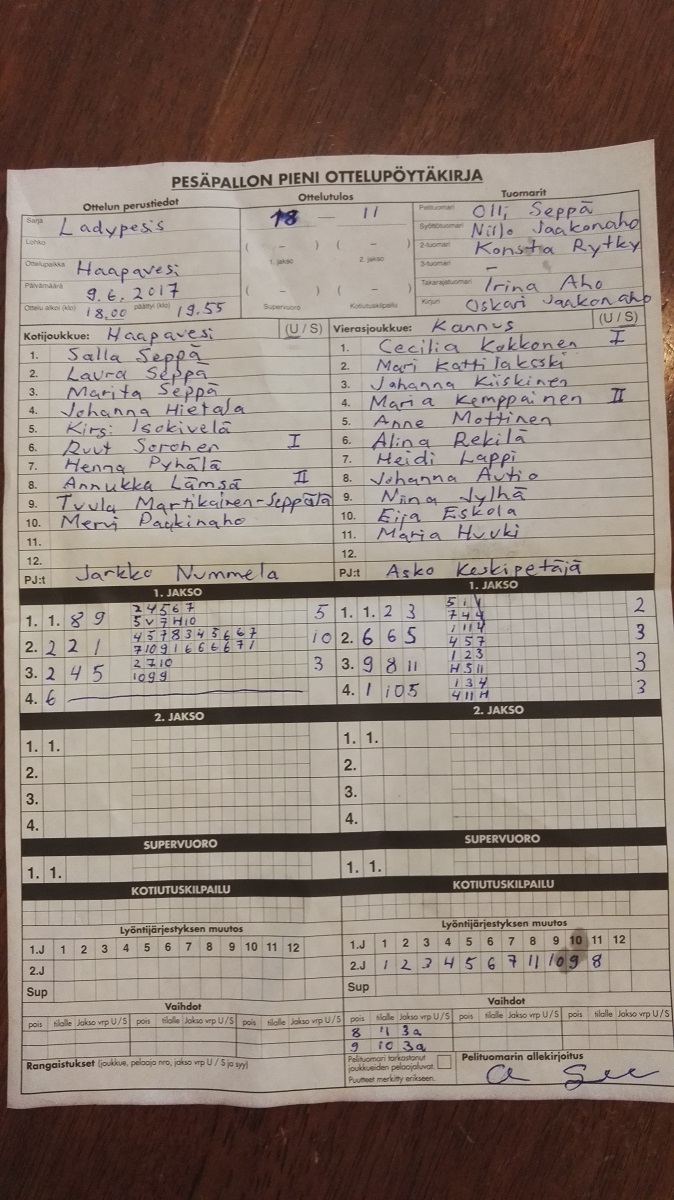 PESÄPALLON PIENI OTTELUPÖYTÄKIRJA
Ottelun perustiedot
Sarja Ladypesis
Lohko
Ottelupaikka Haapavesi
Päivämäärä 9.6.2017
Ottelu alkoi (klo) 18.00 päättyi (klo) 19.55
Ottelutulos
18 — 11
( – ) ( – )
1. jakso 2. jakso
( – ) ( – )
Supervuoro Kotiutuskilpailu
Tuomarit
Pelituomari Olli Seppä
Syöttötuomari Niilo Jaakonaho
2-tuomari Konsta Rytky
3-tuomari –
Takarajatuomari Irina Aho
Kirjuri Oskari Jaakonaho
Kotijoukkue: Haapavesi (U / S)
1. Salla Seppä
2. Laura Seppä
3. Marita Seppä
4. Johanna Hietala
5. Kirsi Isokivelä
6. Ruut Soronen I
7. Henna Pyhälä
8. Annukka Lämsä II
9. Tuula Martikainen-Seppälä
10. Mervi Paakinaho
11.
12.
PJ:t Jarkko Nummela
Vierasjoukkue: Kannus (U / S)
1. Cecilia Kokkonen I
2. Mari Kattilakoski
3. Johanna Kiiskinen
4. Maria Kemppainen II
5. Anne Mottinen
6. Alina Rekilä
7. Heidi Lappi
8. Johanna Autio
9. Niina Jylhä
10. Eija Eskola
11. Marja Huuki
12.
PJ:t Asko Keskipetäjä
1. JAKSO
1. 1. 8 9 2 4 5 6 7 5
5 V 7 H 10
2. 2 2 1 4 5 7 8 3 4 5 6 6 7 10
7 10 9 1 6 6 6 6 7 1
3. 2 4 5 2 7 10 3
10 9 9
4. 6
1. JAKSO
1. 1. 2 3 2
7 4 4
2. 6 6 5 1 1 4 3
4 5 7
3. 9 8 11 1 2 3 3
H 5 11
4. 1 10 5 1 3 4 3
4 11 H
2. JAKSO
1. 1.
2.
3.
4.
2. JAKSO
1. 1.
2.
3.
4.
SUPERVUORO
1. 1.
SUPERVUORO
1. 1.
KOTIUTUSKILPAILU
KOTIUTUSKILPAILU
Lyöntijärjestyksen muutos
1.J 1 2 3 4 5 6 7 8 9 10 11 12
2.J
Sup
Lyöntijärjestyksen muutos
1.J 1 2 3 4 5 6 7 8 9 10 11 12
2.J 1 2 3 4 5 6 7 11 10 9 8
Sup
Vaihdot
pois tilalle Jakso vrp U / S pois tilalle Jakso vrp U / S pois tilalle Jakso vrp U / S
Vaihdot
pois tilalle Jakso vrp U / S pois tilalle Jakso vrp U / S pois tilalle Jakso vrp U / S
8 11 3a
9 10 3a
Rangaistukset (joukkue, pelaaja nro, jakso vrp U / S ja syy)
Pelituomari tarkastanut
joukkueiden pelaajaluvat.
Puutteet merkitty erikseen.
Pelituomarin allekirjoitus